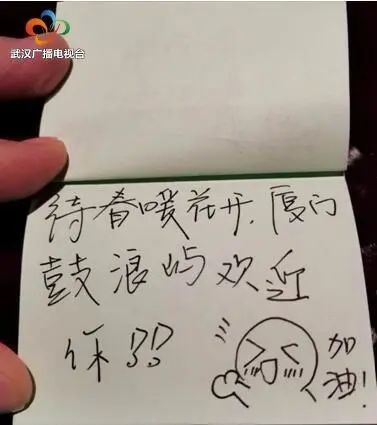 武汉广播电视台
待春暖花开,厦门
鼓浪屿欢迎
你!!
加
油!